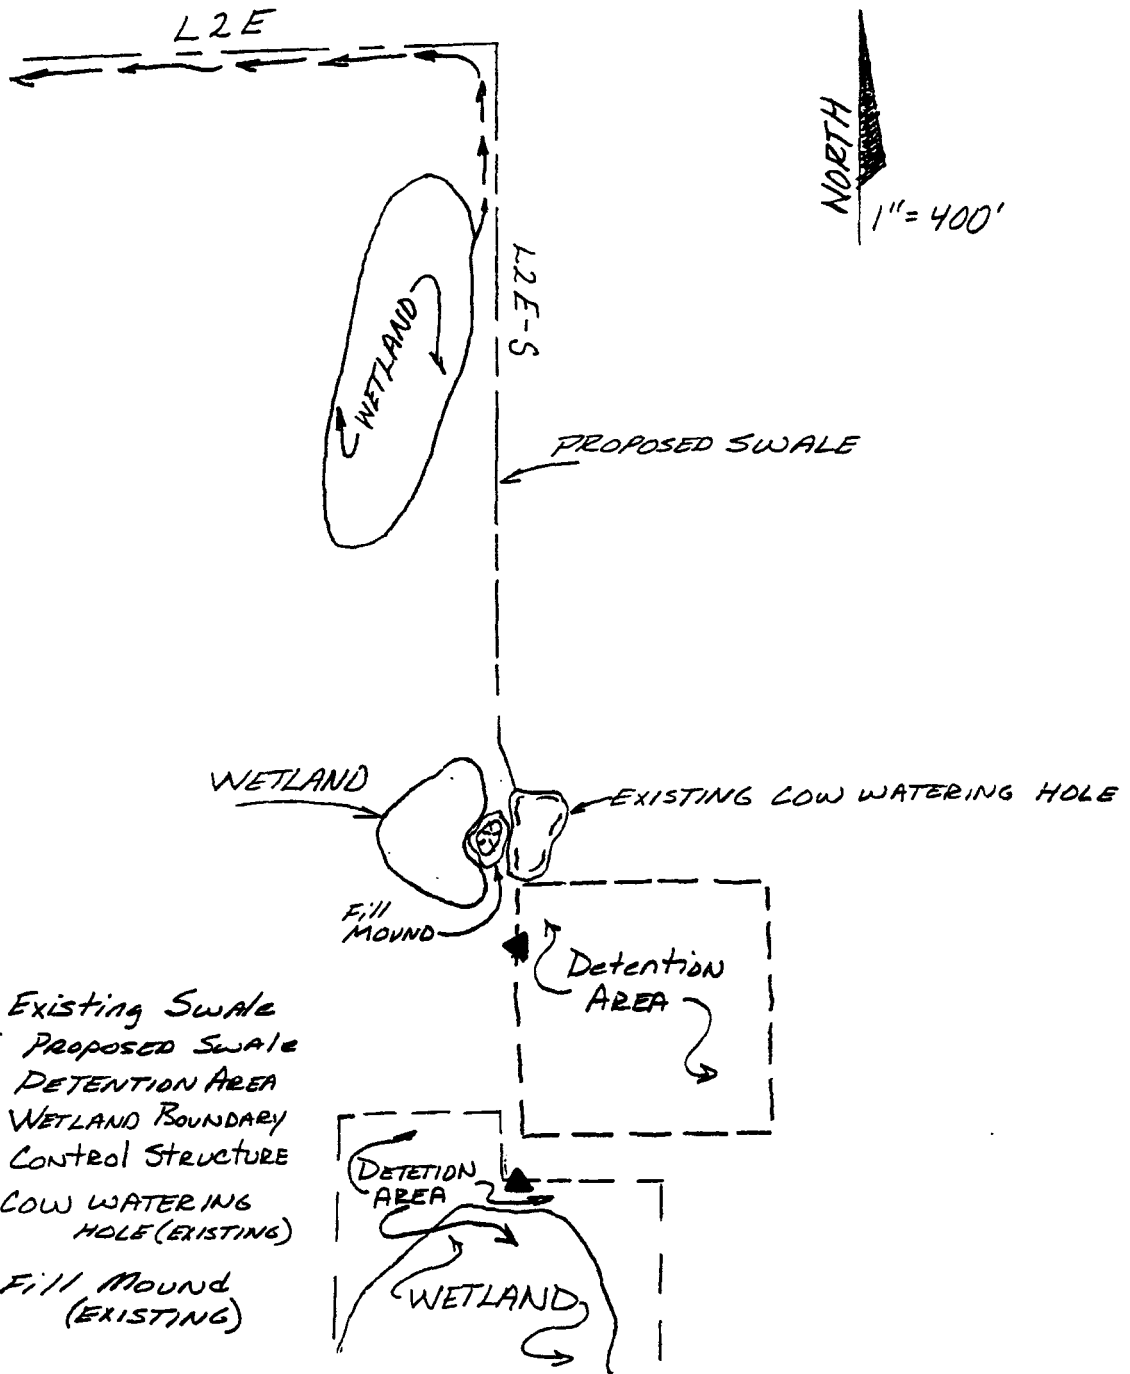 L2E
NORTH
1"=400'
L2E-S
WETLAND
PROPOSED SWALE
WETLAND
EXISTING COW WATERING HOLE
Fill
MOUND
Detention
AREA
Existing Swale
PROPOSED Swale
DETENTION AREA
WETLAND BOUNDARY
Control Structure
COW WATERING
HOLE (EXISTING)
Fill Mound
(EXISTING)
DETETION
AREA
WETLAND